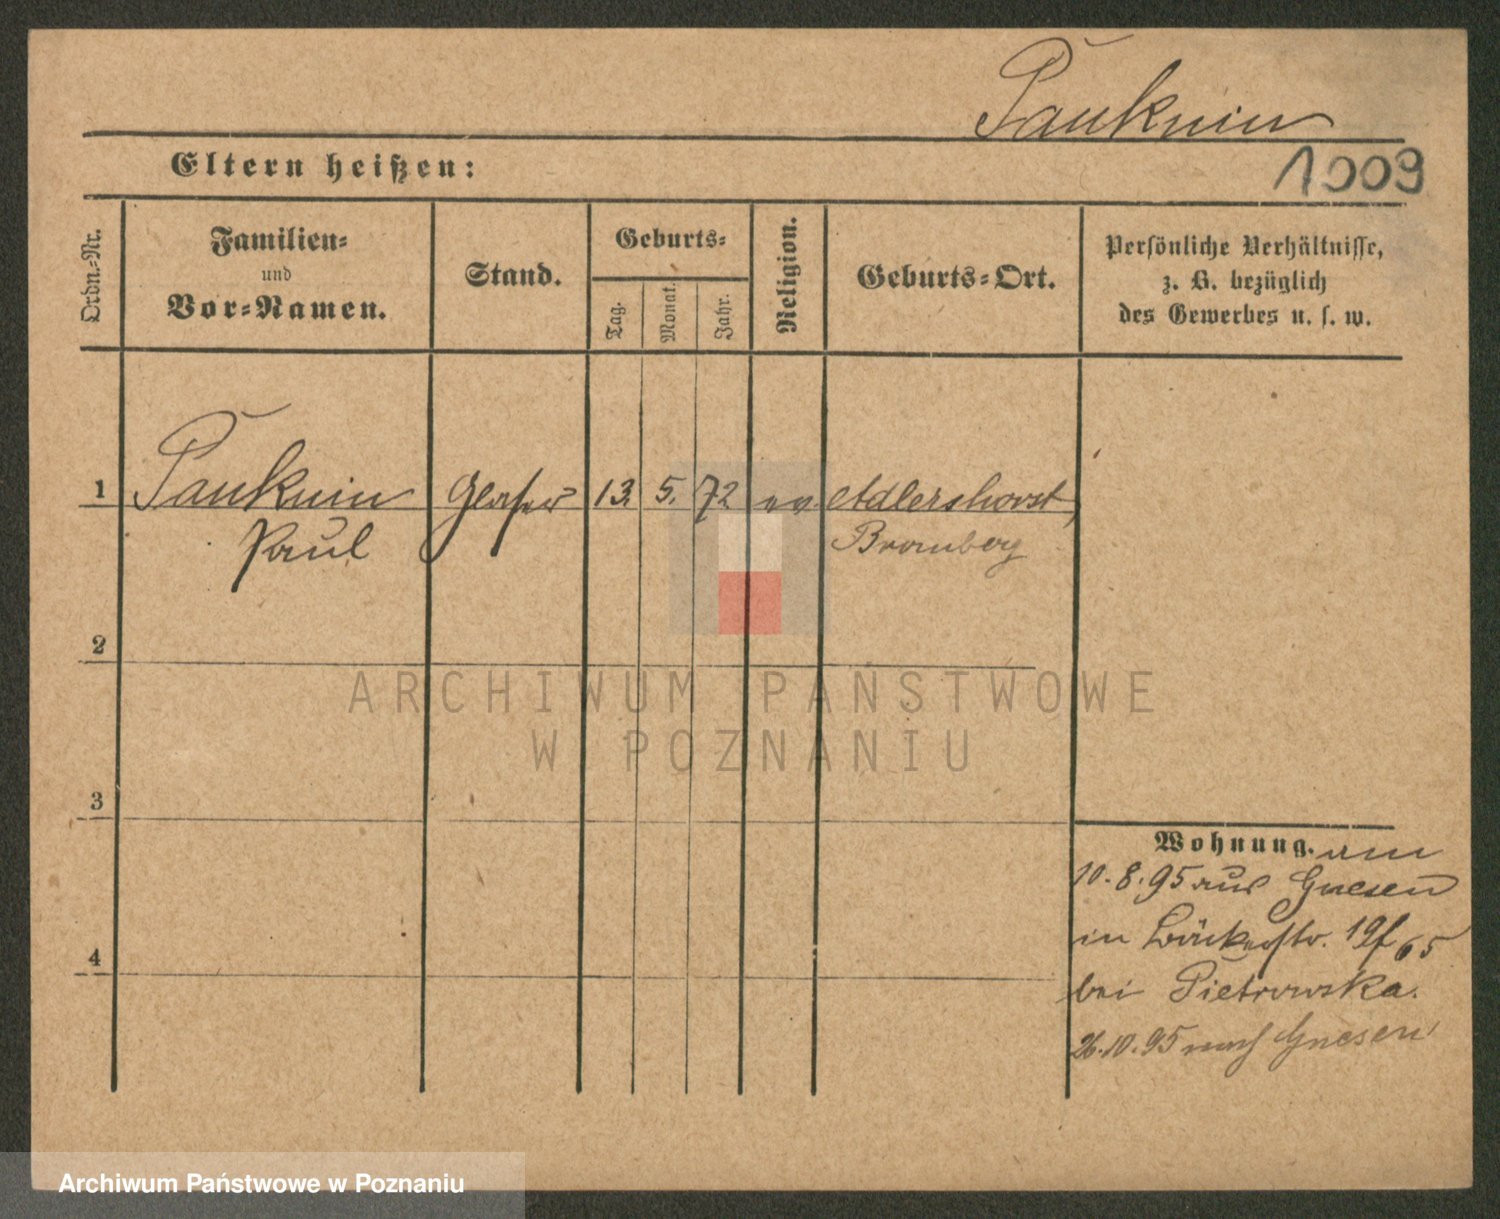 Pauknin
Eltern heißen:
1009
Ordn.-Nr.
Familien-
und
Vor-Namen.
Stand.
Geburts-
Tag.
Monat.
Jahr.
Religion.
Geburts-Ort.
Persönliche Verhältnisse,
z. B. bezüglich
des Gewerbes u. s. w.
1
Pauknin
Paul
Glaser
13.
5.
72
ev.
Adlershorst,
Bromberg
2
3
4
Wohnung. am
10.8.95 aus Gnesen
in Bäckerstr. 19f 65
bei Pietrowska.
26.10.95 nach Gnesen
ARCHIWUM PAŃSTWOWE
W POZNANIU
Archiwum Państwowe w Poznaniu